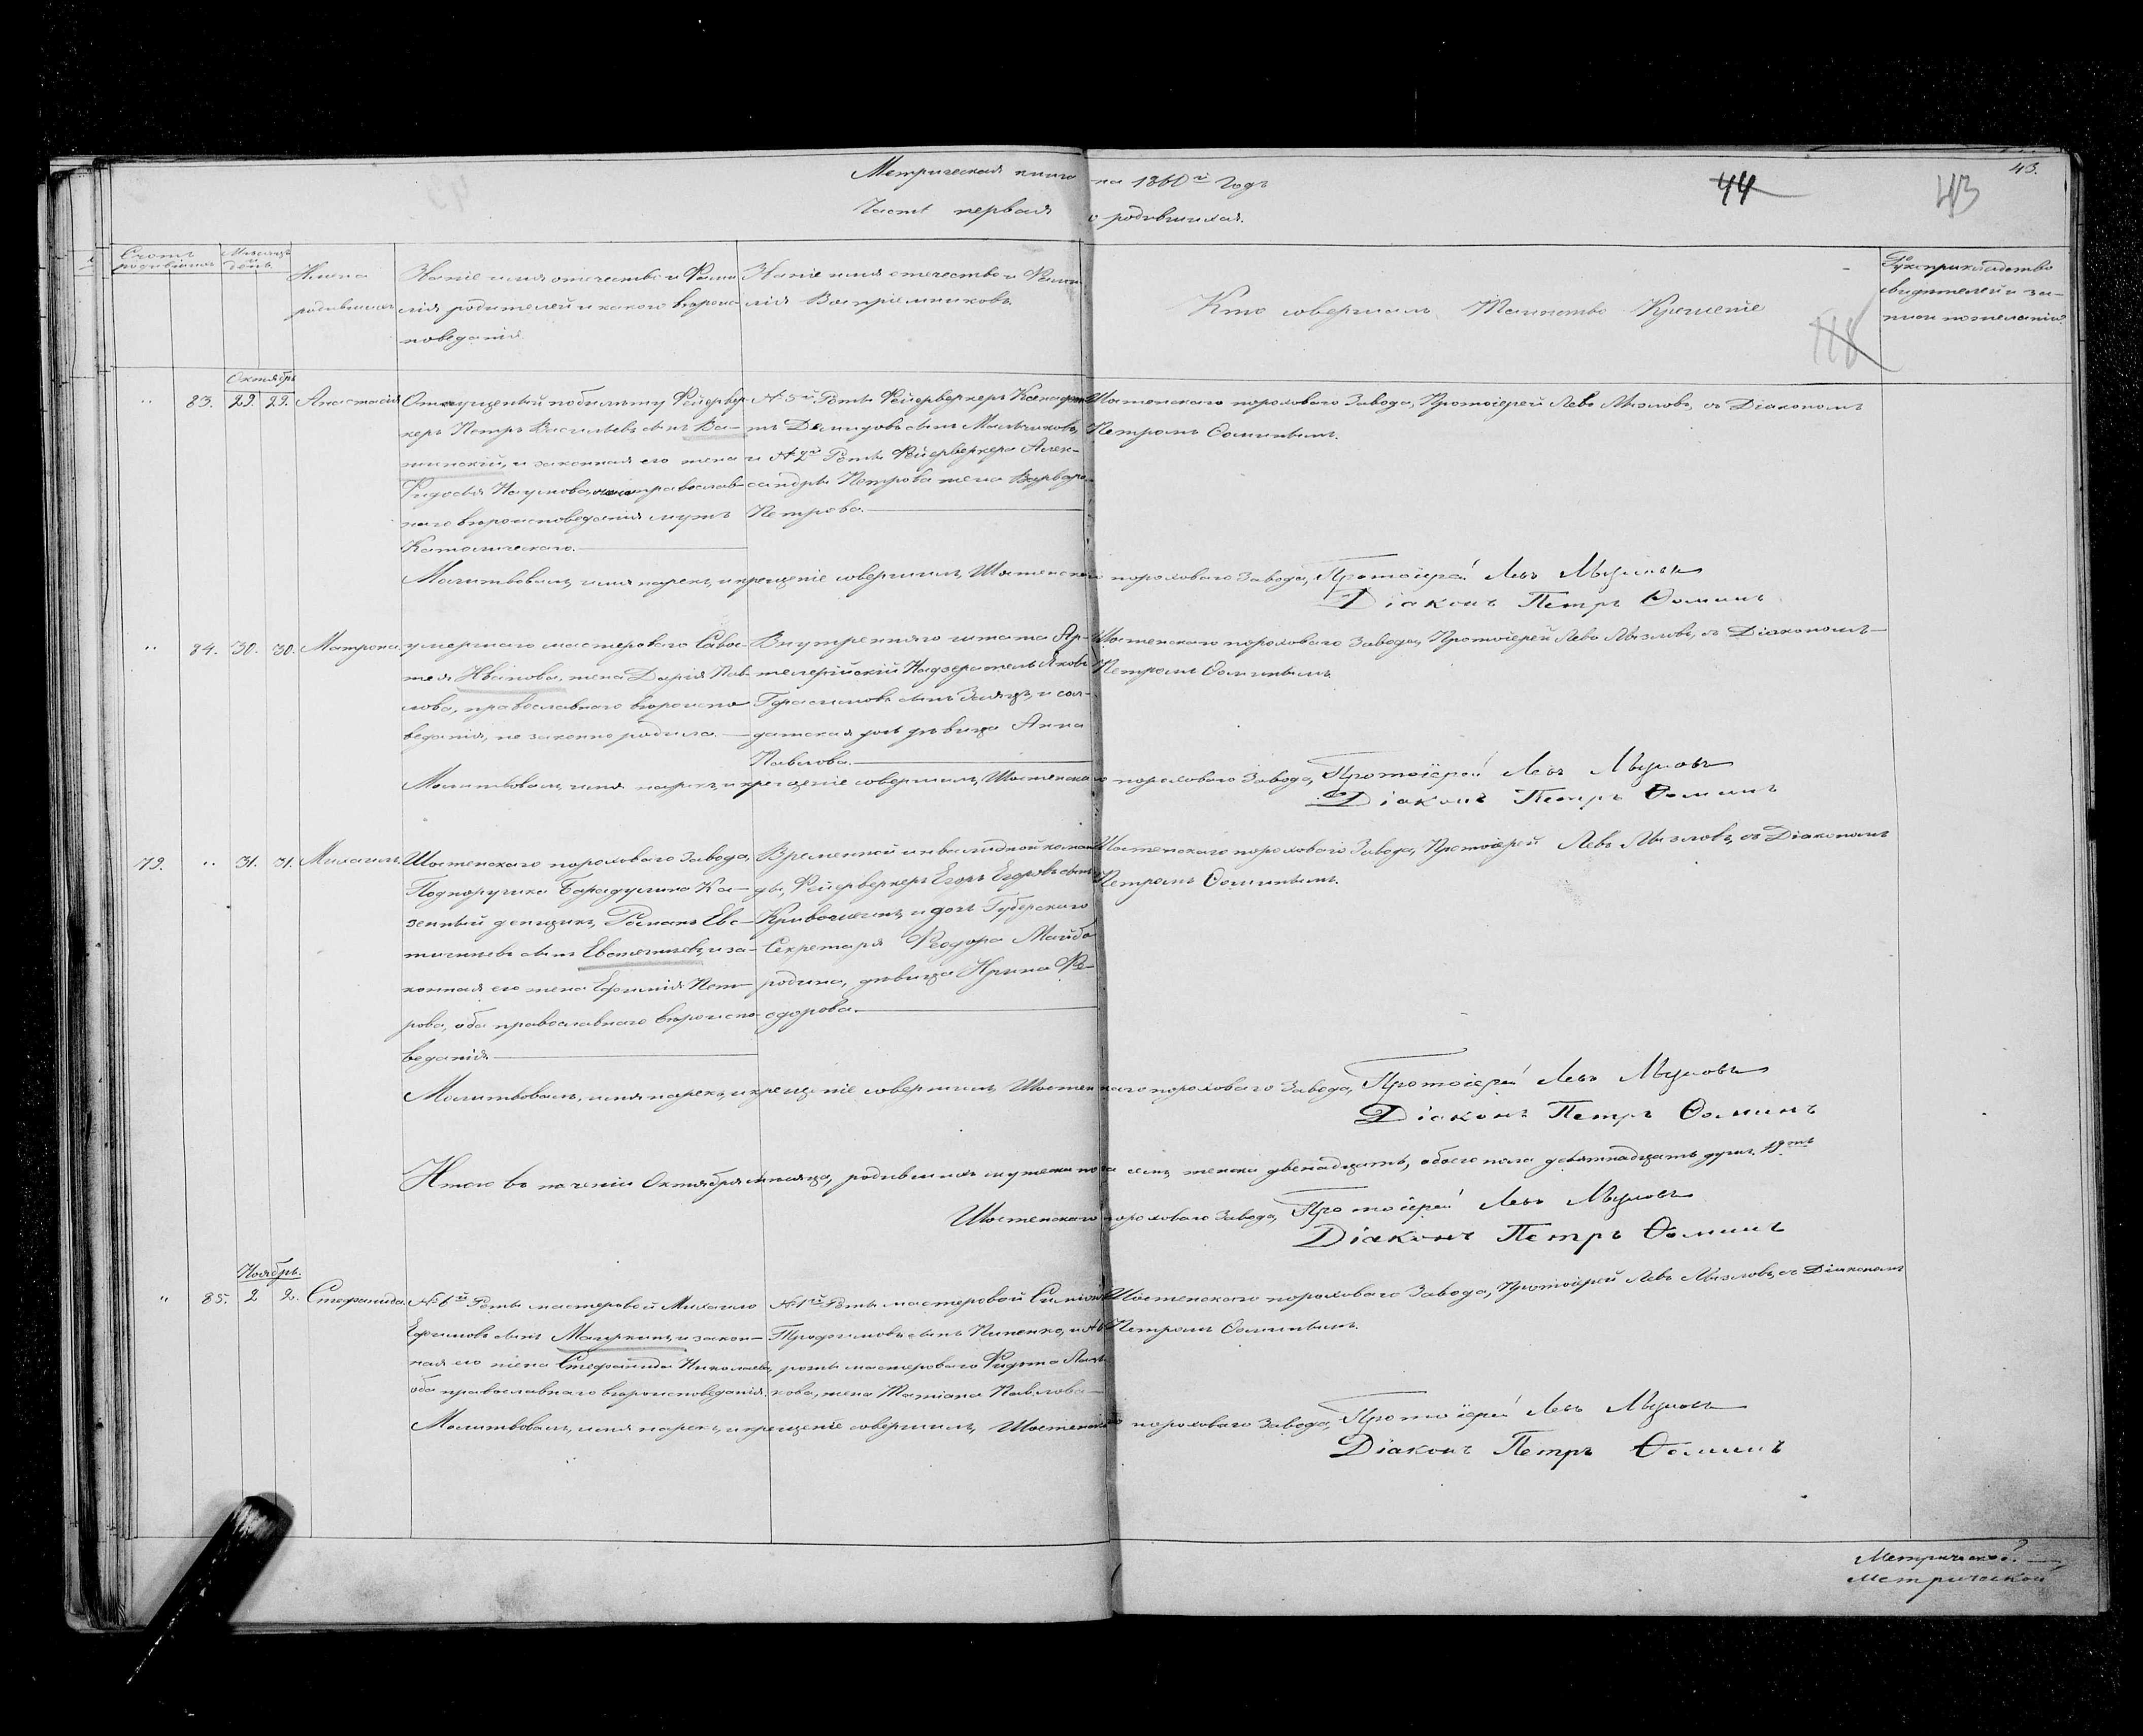 Метрическая книга на 1860й Годъ
43.
44
43
Часть первая о родившихся.
118
Счетъ родившихся
Месяцъ и день
Имена родившихся
Званіе имя отчество и Фами-
лія родителей и какого вероис-
поведанія
Званіе имя отчество и Фами-
лія Воспріемниковъ
Кто совершалъ Таинство Крещенія
Рукоприкладство
свидетелей о за-
писи по желанію
Октябрь
83. 29. 29. Анастасія
Отпущенный по билету Фейервер-
керъ Петръ Васильевъ сынъ
и законная его жена
Наумова, православ-
наго вероисповеданія мужъ
Католическаго.
№ 5й Роты Фейерверкеръ
Демидовъ сынъ Мальчиковъ,
и № 2й Роты Фейерверкера Алек-
сандра Петрова жена Варвара
Петрова.
Шостенскаго пороховаго Завода, Протоіерей Левъ Мызловъ, съ Діакономъ
Петромъ Ѳоминымъ.
Молитвовалъ, имя нарекъ, и крещеніе совершилъ, Шостенскаго пороховаго Завода, Протоіерей Левъ Мызловъ
Діаконъ Петръ Ѳоминъ
84. 30. 30. Матрона
умершаго мастероваго Савос-
тея Иванова, жена Дарія Пав-
лова, православнаго вероиспо-
веданія, не законно родила.
Внутренняго штата Ар-
тилерійскій Надзиратель Яковъ
Герасимовъ сынъ Заяцъ, и сол-
датская дочь девица Анна
Павлова.
Шостенскаго пороховаго Завода, Протоіерей Левъ Мызловъ, съ Діакономъ
Петромъ Ѳоминымъ
Молитвовалъ, имя нарекъ, и крещеніе совершилъ, Шостенскаго пороховаго Завода, Протоіерей Левъ Мызловъ
Діаконъ Петръ Ѳоминъ
79. 31. 31. Михаилъ
Шостенскаго пороховаго Завода,
Подпоручика Барадулина Ка-
зенный денщикъ, Романъ Евс-
тигнеевъ сынъ Евстигнеевъ, и за-
конная его жена Ефимія Пет-
рова, оба православнаго вероиспо-
веданія.
Временной инвалидной коман-
ды, Фейерверкеръ Егоръ Егоровъ сынъ
Кривошеинъ, и дочь Губерскаго
Секретаря Феодора Майбо-
родина, девица Ирина Фе-
одорова.
Шостенскаго пороховаго Завода, Протоіерей Левъ Мызловъ, съ Діакономъ
Петромъ Ѳоминымъ.
Молитвовалъ, имя нарекъ, и крещеніе совершилъ, Шостенскаго пороховаго Завода, Протоіерей Левъ Мызловъ
Діаконъ Петръ Ѳоминъ
Итого въ теченіи Октября месяца, родившихся мужеска пола семь, женска двенадцать, обоего пола девятнадцать душъ. 19ть
Шостенскаго пороховаго Завода, Протоіерей Левъ Мызловъ
Діаконъ Петръ Ѳоминъ
Ноябрь.
85. 2 2. Стефанида
№ 6й Роты мастеровой Михаило
Ефимовъ сынъ Мачеркинъ, и закон-
ная его жена Стефанида Николаева,
оба православнаго вероисповеданія.
№ 1й Роты мастеровой Симеонъ
Трофимовъ сынъ Пипенко, и № 6
роты мастероваго
кова, жена Татіана Павлова
Шостенскаго пороховаго Завода, Протоіерей Левъ Мызловъ, съ Діакономъ
Петромъ Ѳоминымъ.
Молитвовалъ, имя нарекъ, и крещеніе совершилъ, Шостенскаго пороховаго Завода, Протоіерей Левъ Мызловъ
Діаконъ Петръ Ѳоминъ
Метрической
Метрической